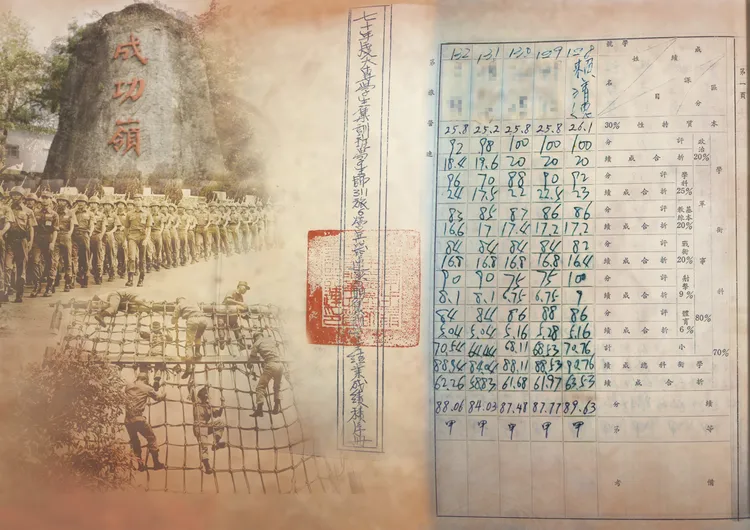 成功嶺
七十年度大專學生集訓班學生師311旅6營
結業成績積序冊
第一頁
第 旅 營 連
成績 區分 課目 學號 姓名 132 131 130 129 128
賴清德
本質特性 30% 25.8 25.2 25.8 25.8 26.1
學術科 70%
軍事 80%
政治 20% 評分 92 98 100 100 100
折合成績 18.4 19.6 20 20 20
學科 25% 評分 96 70 88 90 92
折合成績 24 17.5 22 22.5 23
基本教練 20% 評分 83 85 87 86 86
折合成績 16.6 17 17.4 17.2 17.2
戰術 20% 評分 84 84 84 84 82
折合成績 16.8 16.8 16.8 16.8 16.4
射擊 9% 評分 90 90 75 75 100
折合成績 8.1 8.1 6.75 6.75 9
體育 6% 評分 84 84 86 88 86
折合成績 5.04 5.04 5.16 5.28 5.16
小計 70.54 64.44 68.11 68.53 70.76
學術科總成績 88.94 84.04 88.11 88.53 90.76
折合成績 62.26 58.83 61.68 61.97 63.53
績分 88.06 84.03 87.48 87.77 89.63
等第 甲 甲 甲 甲 甲
備考